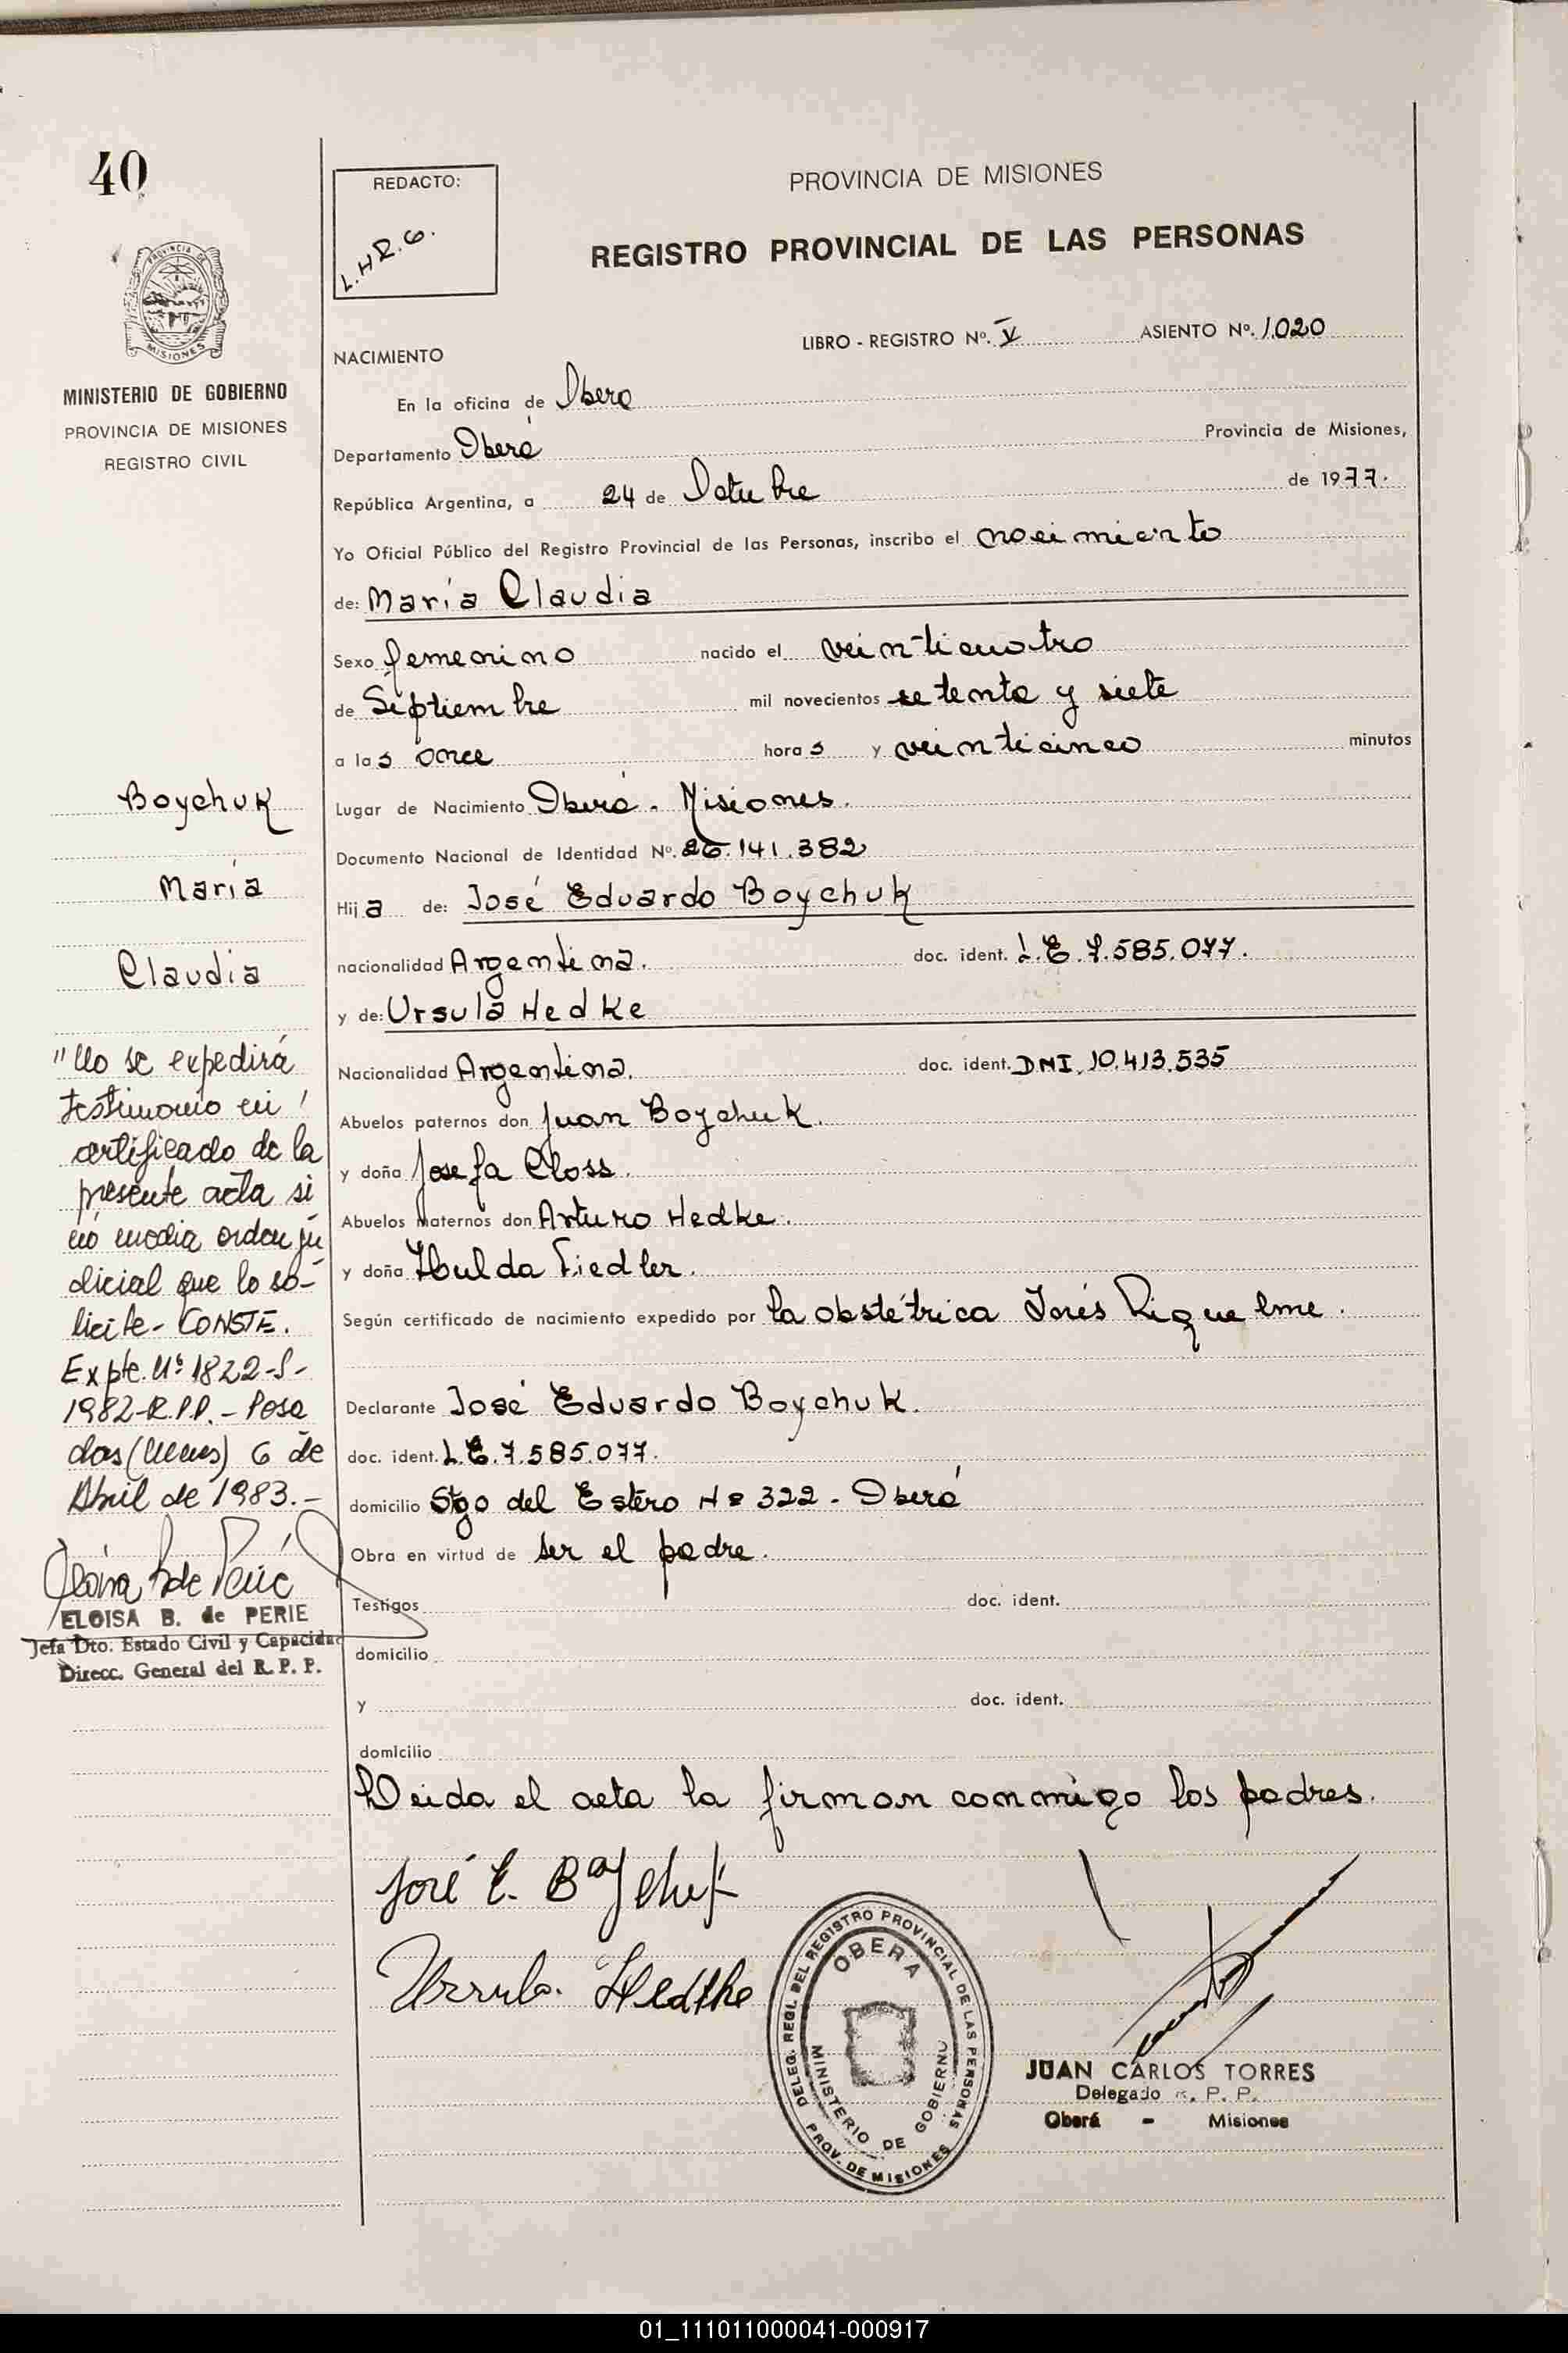 40
REDACTO:
L.H.R.G.
PROVINCIA DE MISIONES
REGISTRO PROVINCIAL DE LAS PERSONAS
PROVINCIA DE
MISIONES
MINISTERIO DE GOBIERNO
PROVINCIA DE MISIONES
REGISTRO CIVIL
LIBRO - REGISTRO Nº. V ASIENTO Nº. 1.020
NACIMIENTO
En la oficina de Obera
Departamento Oberá Provincia de Misiones,
República Argentina, a 24 de Octubre de 1977.
Yo Oficial Público del Registro Provincial de las Personas, inscribo el nacimiento
de: María Claudia
Sexo femenino nacido el veinticuatro
de Septiembre mil novecientos setenta y siete
a las once horas y veinticinco minutos
Lugar de Nacimiento Oberá - Misiones.
Documento Nacional de Identidad Nº. 26.141.382
Hija de: José Eduardo Boychuk
nacionalidad Argentina. doc. ident. L.E. 7.585.077.
y de: Ursula Hedke
Nacionalidad Argentina. doc. ident. DNI. 10.413.535
Abuelos paternos don Juan Boychuk.
y doña Josefa Closs.
Abuelos maternos don Arturo Hedke.
y doña Hulda Fiedler.
Según certificado de nacimiento expedido por la obstétrica Inés Riquelme.
Declarante José Eduardo Boychuk.
doc. ident. L.E. 7.585.077.
domicilio Stgo del Estero Nº 322 - Oberá
Obra en virtud de ser el padre.
Testigos doc. ident.
domicilio
y doc. ident.
domicilio
Leida el acta la firman conmigo los padres.
José E. Boychuk
Ursula Hedke
DELEG. REGL. DEL REGISTRO PROVINCIAL DE LAS PERSONAS
OBERA
MINISTERIO DE GOBIERNO
PROV. DE MISIONES
JUAN CARLOS TORRES
Delegado R. P. P.
Oberá - Misiones
Boychuk
María
Claudia
"No se expedirá
testimonio ni
certificado de la
presente acta si
nó media orden ju
dicial que lo so-
licite - CONSTE.
Expte. Nº 1822-S-
1982-R.P.P. - Posa
das (Mnes) 6 de
Abril de 1983.-
ELOISA B. de PERIE
Jefa Dto. Estado Civil y Capacidad
Direcc. General del R. P. P.
01_111011000041-000917